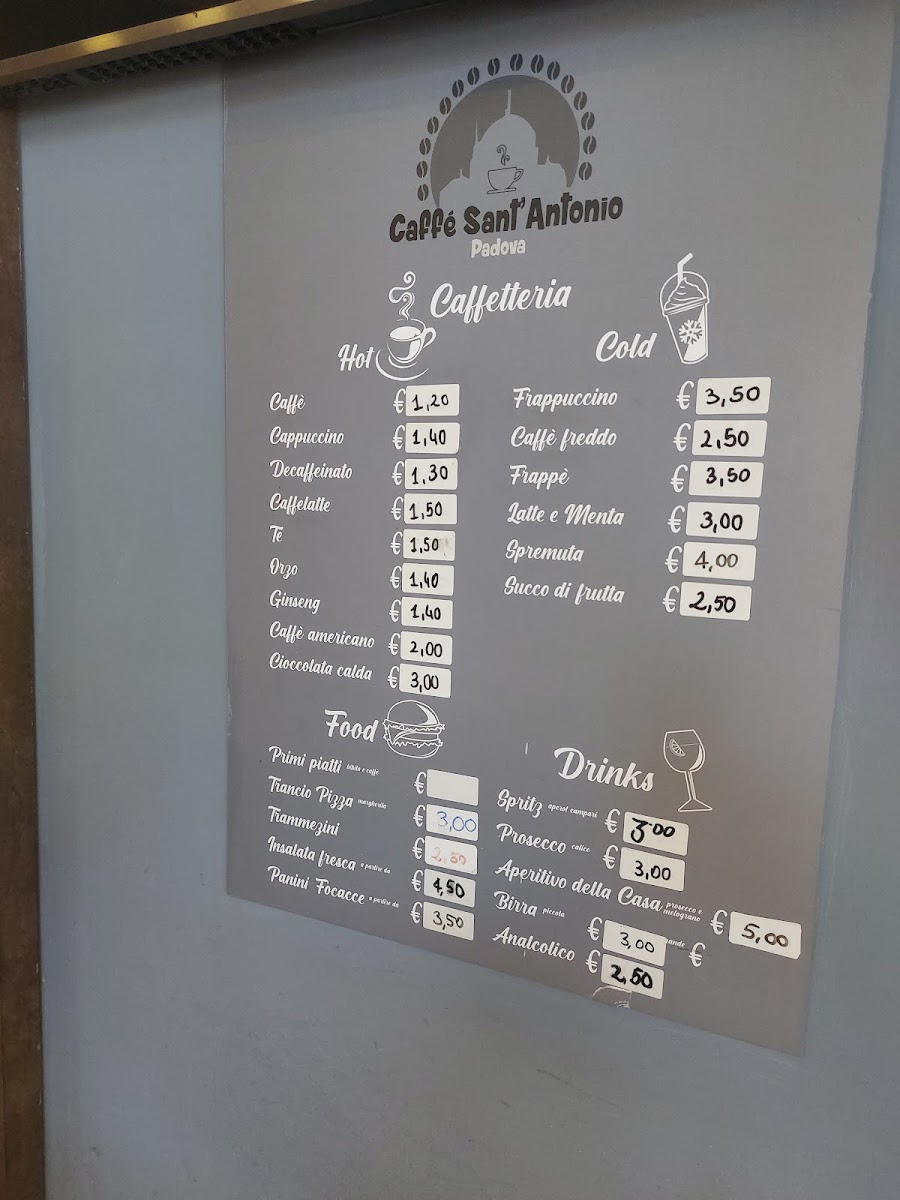 Caffé Sant'Antonio
Padova
Caffetteria
Hot
Caffè € 1,20
Cappuccino € 1,40
Decaffeinato € 1,30
Caffelatte € 1,50
Tè € 1,50
Orzo € 1,40
Ginseng € 1,40
Caffè americano € 2,00
Cioccolata calda € 3,00
Cold
Frappuccino € 3,50
Caffè freddo € 2,50
Frappè € 3,50
Latte e Menta € 3,00
Spremuta € 4,00
Succo di frutta € 2,50
Food
Primi piatti €
Trancio Pizza margherita € 3,00
Trammezini € 2,50
Insalata fresca a partire da € 4,50
Panini Focacce a partire da € 3,50
Drinks
Spritz aperol campari € 3,00
Prosecco calice € 3,00
Aperitivo della Casa prosecco e melograno € 5,00
Birra piccola € 3,00 €
Analcolico € 2,50